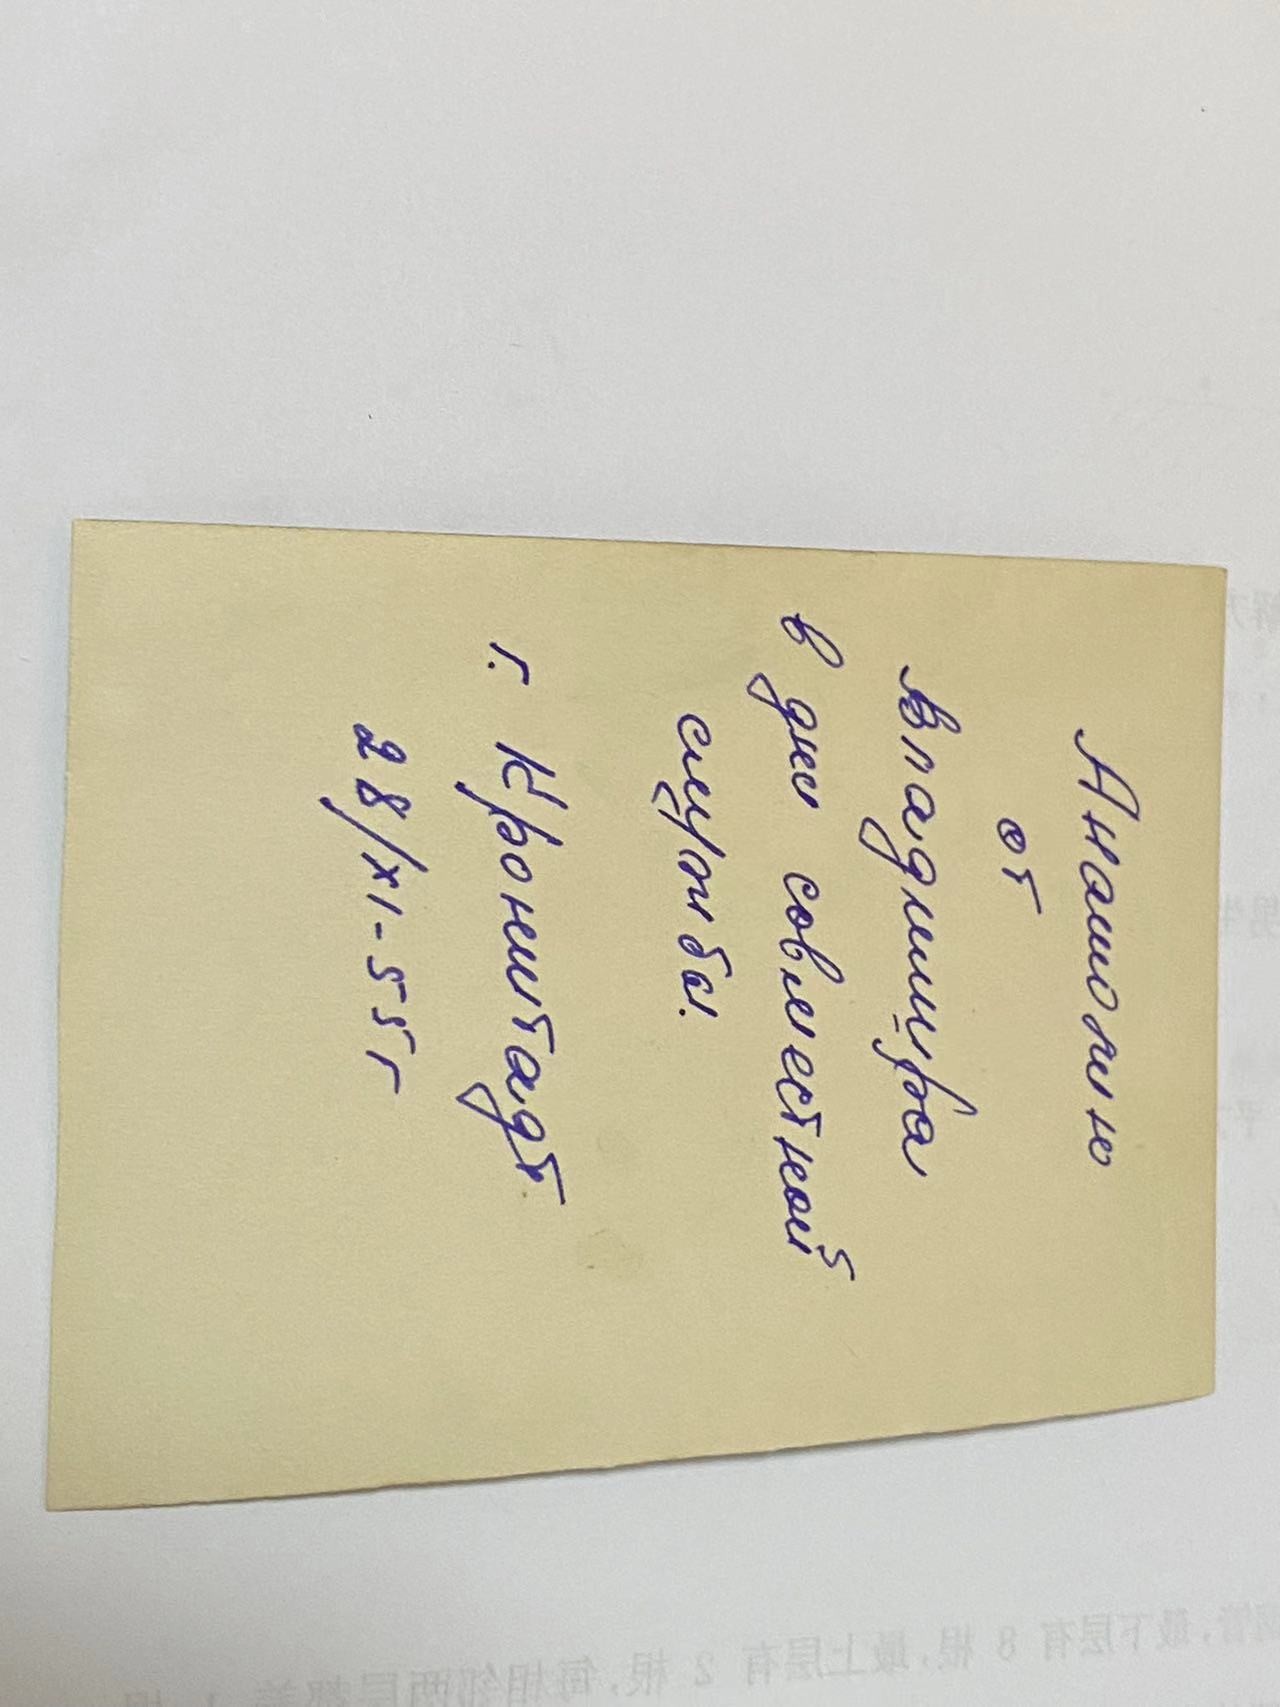 Анатолию
от
Владимира
в дни совместной
службы.
г. Кронштадт
28/XI-55г